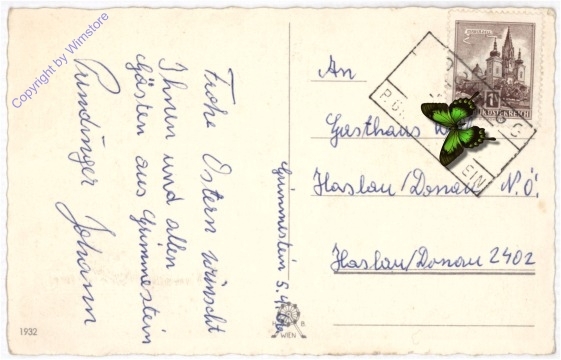 Copyright by Wimstore
Frohe Ostern wünscht
Ihnen und allen
Gästen aus Grimmestein
Pundinger Johann
Grimmestein 5.4.
An
Gasthaus
Haslau/Donau N.Ö.
Haslau/Donau 2402
MARIAZELL
ÖSTERREICH
EIN
1932
B
WIEN